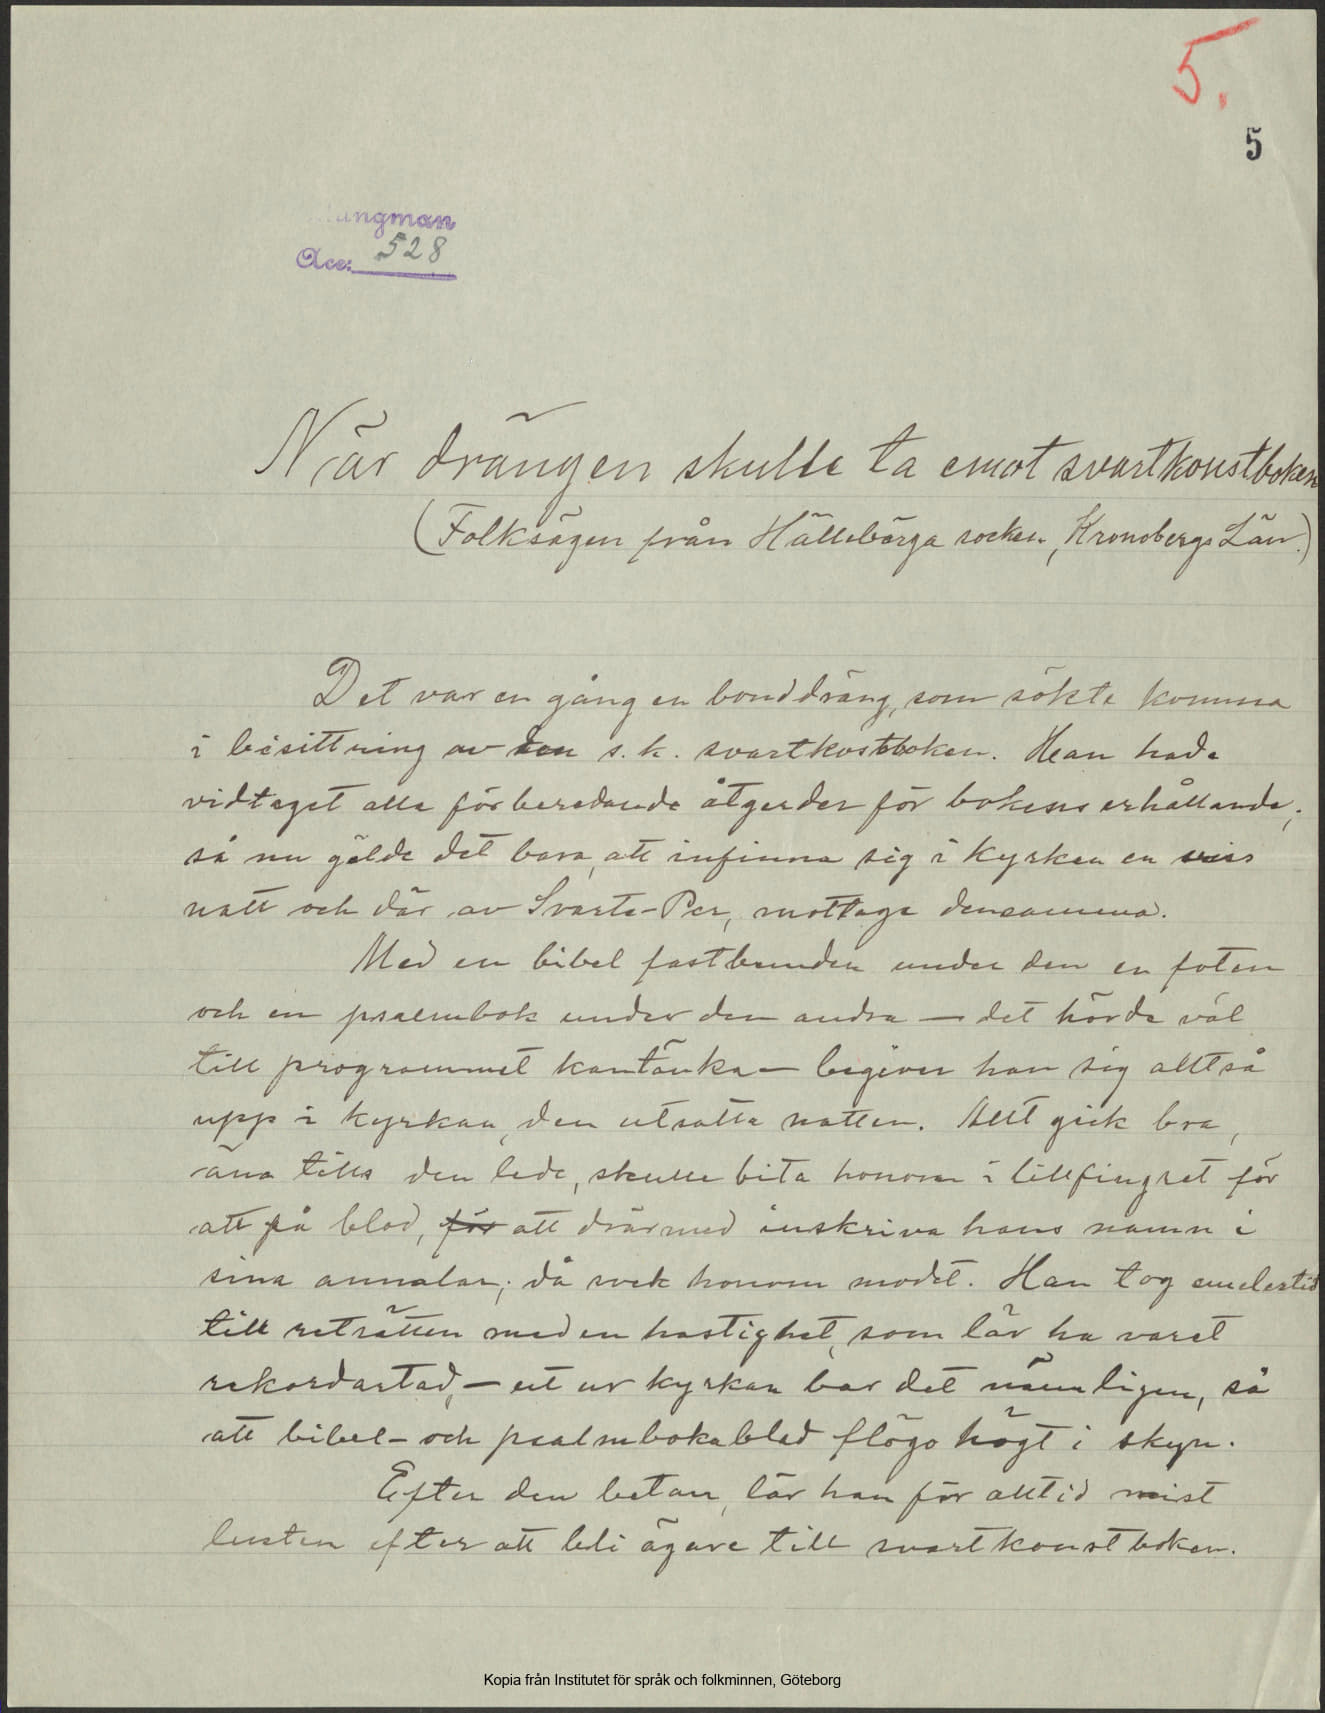 5.
5
ungman
Acc: 528
När drängen skulle ta emot svartkonstboken
(Folksägen från Hälleberga socken, Kronobergs Län.)
Det var en gång en bonddräng, som sökte komma
i besittning av den s.k. svartkostboken. Han hade
vidtaget alla förberedande åtgerder för bokens erhållande,
så nu gälde det bara, att infinna sig i Kyrkan en viss
natt och där av Svarte-Per, mottaga densamma.
Med en bibel fastbunden under den en foten
och en psalmbok under den andra — det hörde väl
till programmet kantänka — begiver han sig alltså
upp i kyrkan, den utsatta natten. Allt gick bra,
äna tills den lede, skulle bita honom i lillfingret för
att få blod, för att därmed inskriva hans namn i
sina annalar; då svek honom modet. Han tog emelertid
till reträtten med en hastighet, som lär ha varet
rekordartad, — ut ur kyrkan bar det nämligen, så
att bibel- och psalmboksblad flögo högt i skyn.
Efter den betan, lär han för alltid mist
lusten efter att bli ägare till svartkonstboken.
Kopia från Institutet för språk och folkminnen, Göteborg